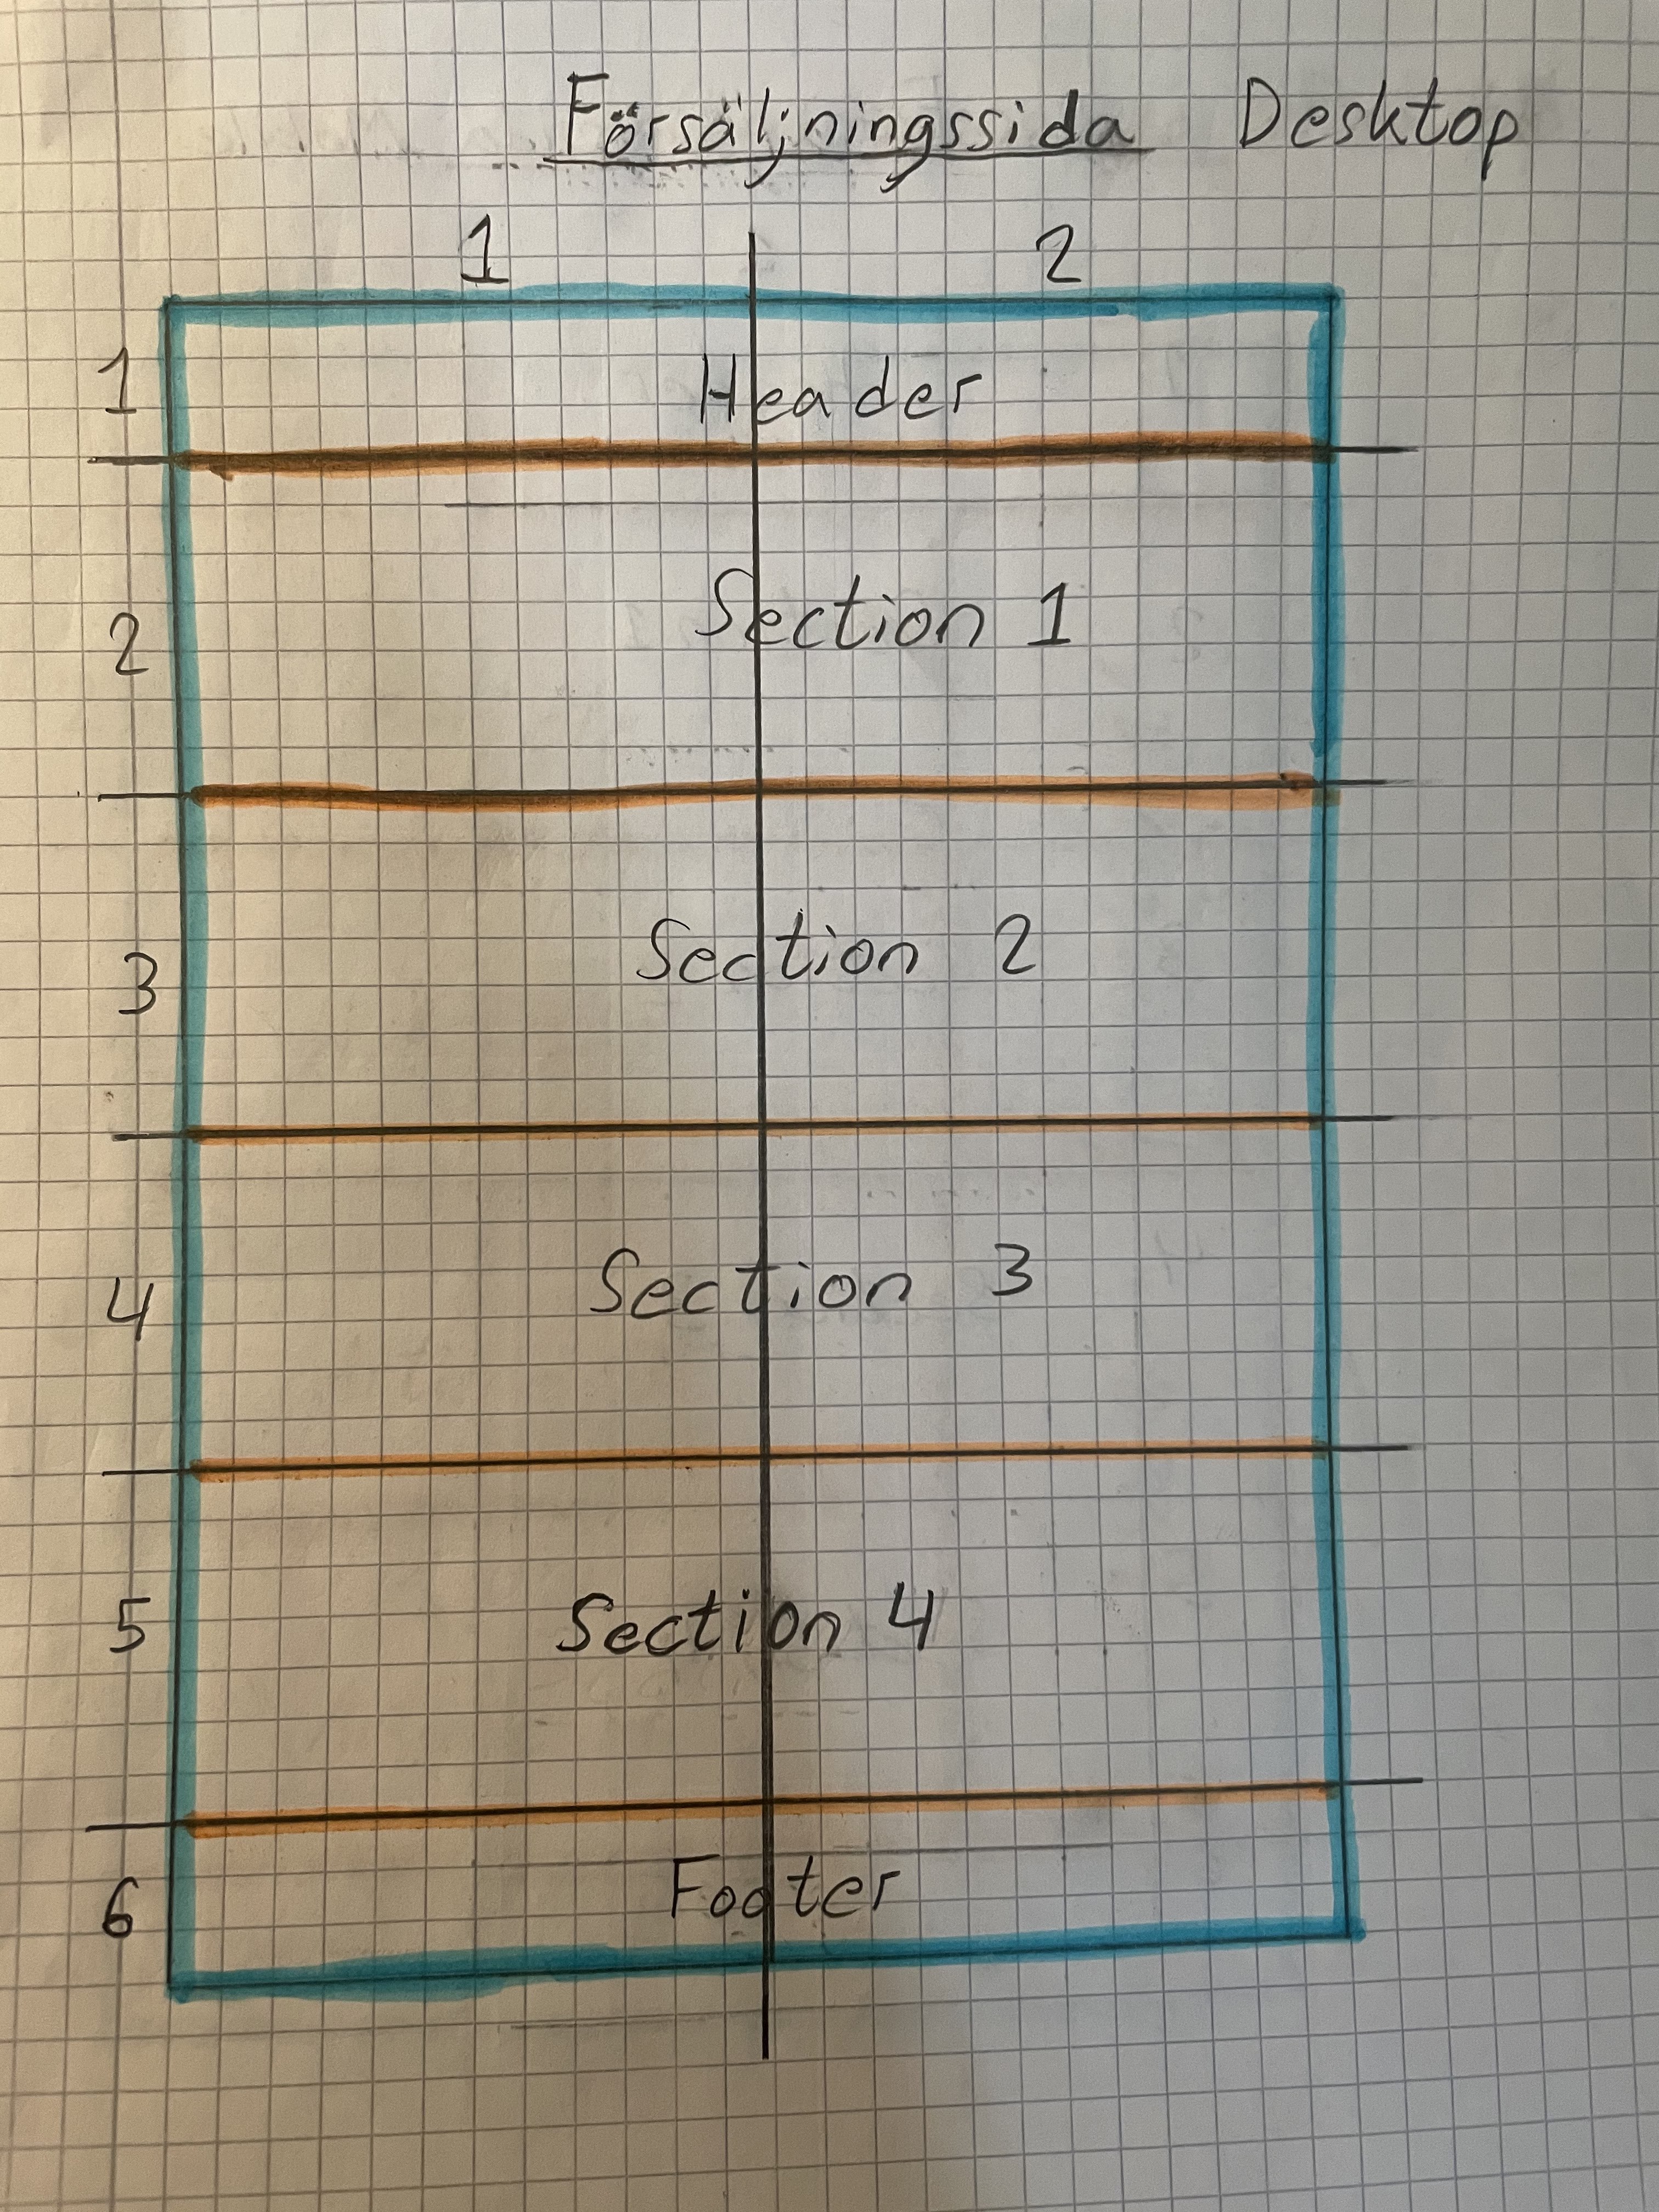 Försäljningssida Desktop
1 2
1 Header
2 Section 1
3 Section 2
4 Section 3
5 Section 4
6 Footer